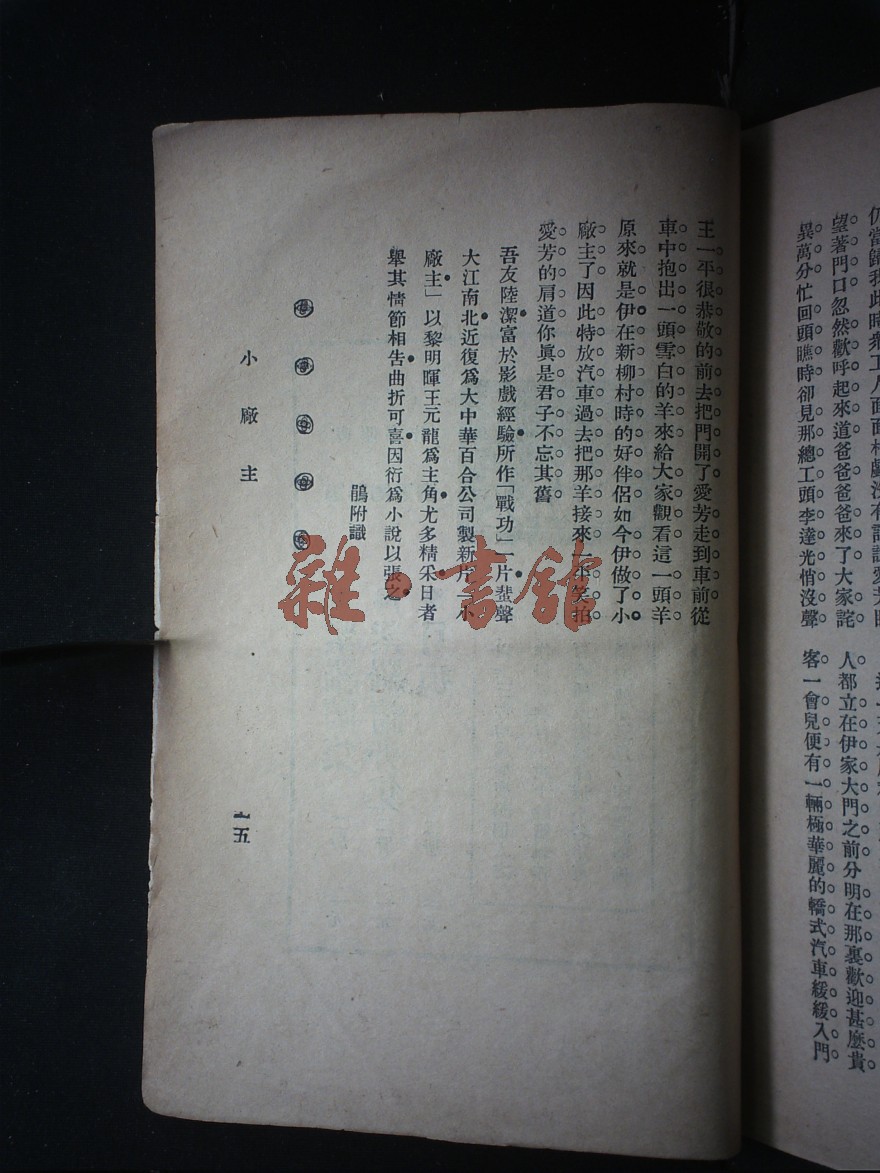 望著門口忽然歡呼起來道爸爸爸爸來了大家詫
異萬分忙回頭瞧時卻見那總工頭李達光悄沒聲
人都立在伊家大門之前分明在那裏歡迎甚麼貴
客一會兒便有一輛極華麗的轎式汽車緩緩入門
王一平很恭敬的前去把門開了愛芳走到車前從
車中抱出一頭雪白的羊來給大家觀看這一頭羊
原來就是伊在新柳村時的好伴侶如今伊做了小
廠主了因此特放汽車過去把那羊接來一平笑拍
愛芳的肩道你眞是君子不忘其舊
吾友陸潔富於影戲經驗所作「戰功」一片蜚聲
大江南北近復爲大中華百合公司製新片「小
廠主」以黎明暉王元龍爲主角尤多精采日者
舉其情節相告曲折可喜因衍爲小說以張之
鵑附識
小廠主
一五
雜·書館